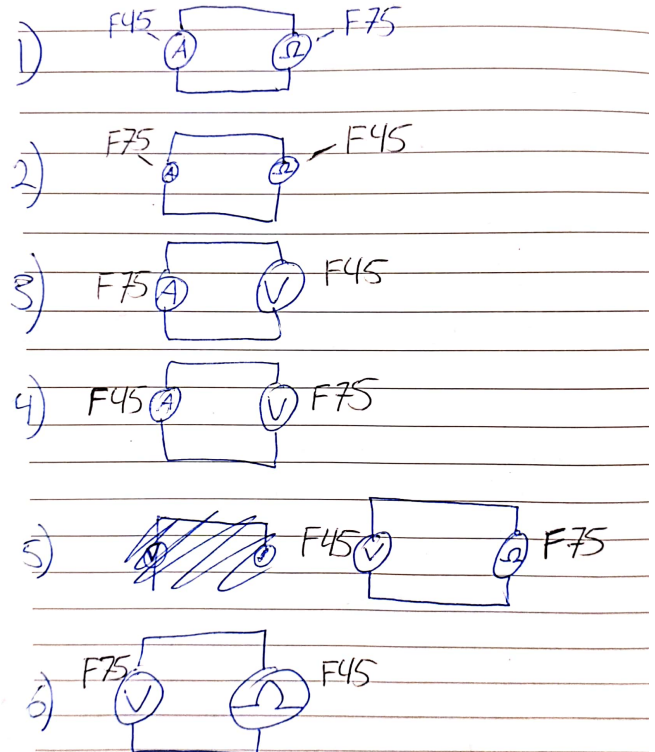 1) F45 A Ω F75
2) F75 A Ω F45
3) F75 A V F45
4) F45 A V F75
5) F45 V Ω F75
6) F75 V Ω F45